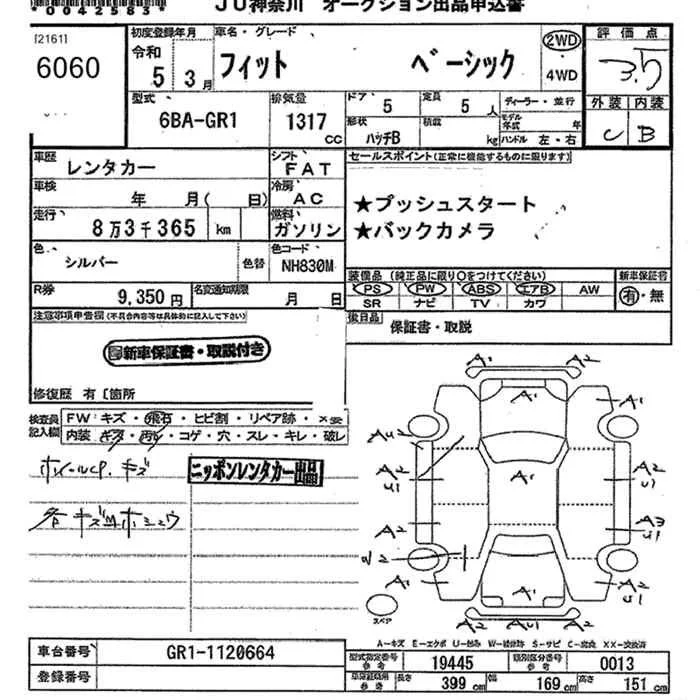 *0042583*
JU神奈川 オークション出品申込書
[2161]
6060
初度登録年月
令和
5 3月
車名・グレード
フィット ベーシック
2WD
4WD
評価点
3.5
外装 内装
C B
型式
6BA-GR1
排気量
1317
CC
ドア
5
定員
5 人
ディーラー・並行
モデル年式 年
形状
ハッチB
積載
kg
ハンドル 左・右
車歴
レンタカー
シフト
FAT
セールスポイント(正常に機能するものに限ります)
車検
年 月( 日)
冷房
AC
★プッシュスタート
★バックカメラ
走行
8万3千365 km
燃料
ガソリン
色
シルバー
色替
色コード
NH830M
装備品 (純正品に限り○をつけてください)
新車保証書
PS PW ABS エアB AW
SR ナビ TV カワ
有・無
R券
9,350円
名変通知期限
月 日
注意事項申告欄(不具合内容等は具体的に記入して下さい)
後日品
保証書・取説
新車保証書・取説付き
修復歴 有 [箇所
検査員記入欄
FW キズ・飛石・ヒビ割・リペア跡・
内装 キズ・汚れ・コゲ・穴・スレ・キレ・破レ
ホイールCP.キズ
ニッポンレンタカー出品
A1 A2
A1
A1
AU2
A2
U1
A1
A2
U1
A2
A3
U1
A1
A1
A2
U1
A2 AU2 A2
スペア
A-キズ E-エクボ U-凹み W-補修跡 S-サビ C-腐食 XX-交換済
車台番号
GR1-1120664
登録番号
型式指定番号
参考
19445
類別区分番号
参考
0013
参考
長さ
399 cm
幅
169 cm
高さ
151 cm